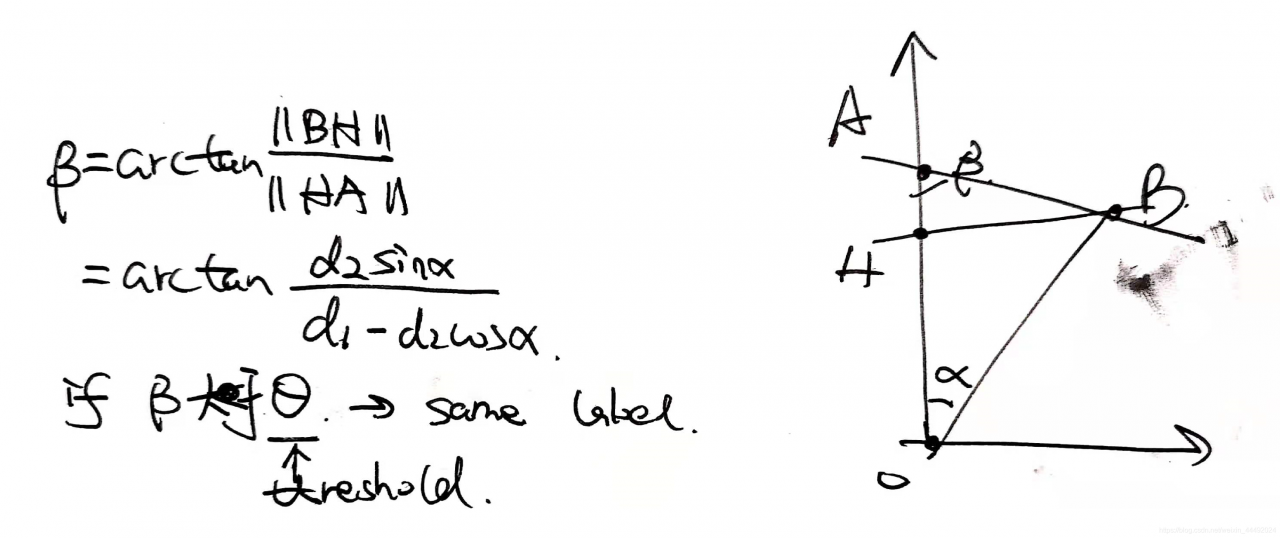 β=arctan ||BH|| / ||HA||
=arctan d₂sinα / d₁-d₂cosα.
if β大于θ. → same label.
↑
threshold.
A
β.
B.
H
α
O